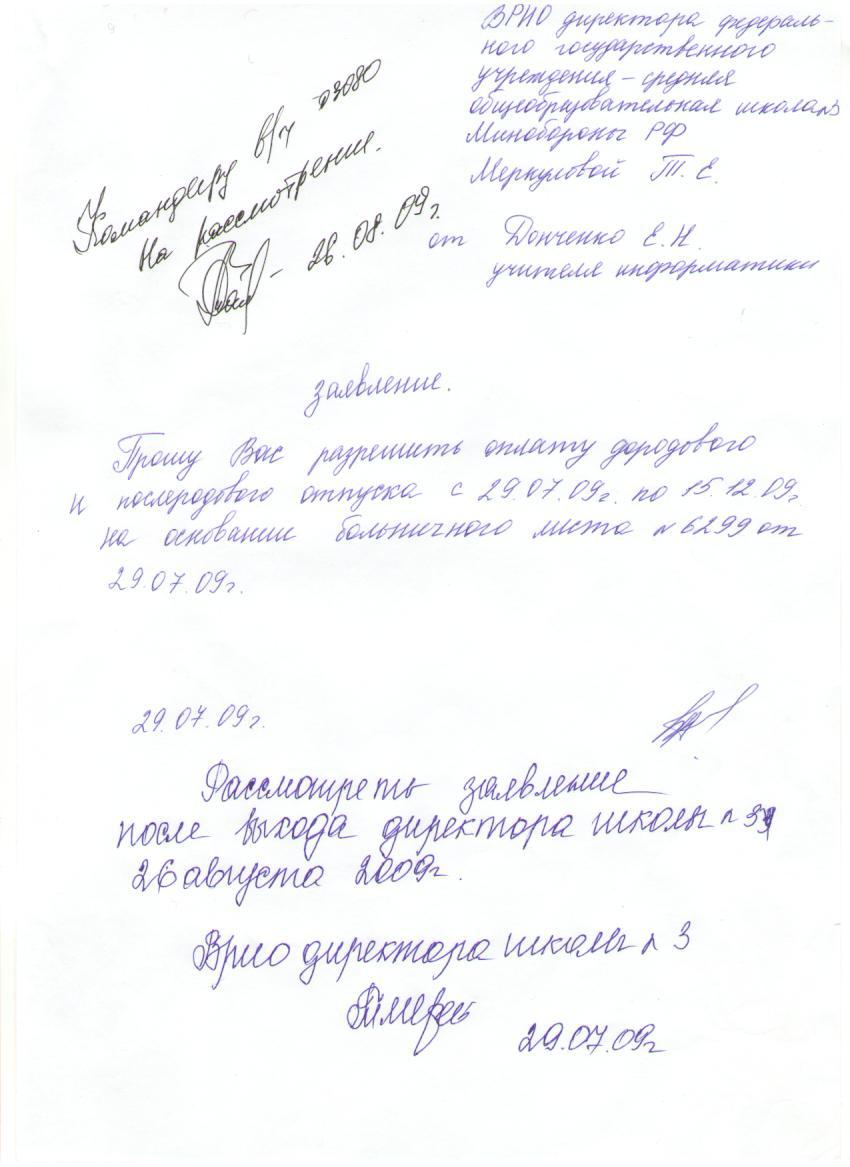 ВРИО директора федераль-
ного государственного
учреждения – средняя
общеобразовательная школа №3
Минобороны РФ
Меркуловой Т. Е.
от Донченко Е. Н.
учителя информатики
Командиру в/ч 03080
На рассмотрение.
26.08.09г.
заявление.
Прошу Вас разрешить оплату дородового
и послеродового отпуска с 29.07.09г. по 15.12.09г.
на основании больничного листа №6299 от
29.07.09г.
29.07.09г.
Рассмотреть заявление
после выхода директора школы №3
26 августа 2009г.
Врио директора школы №3
29.07.09г